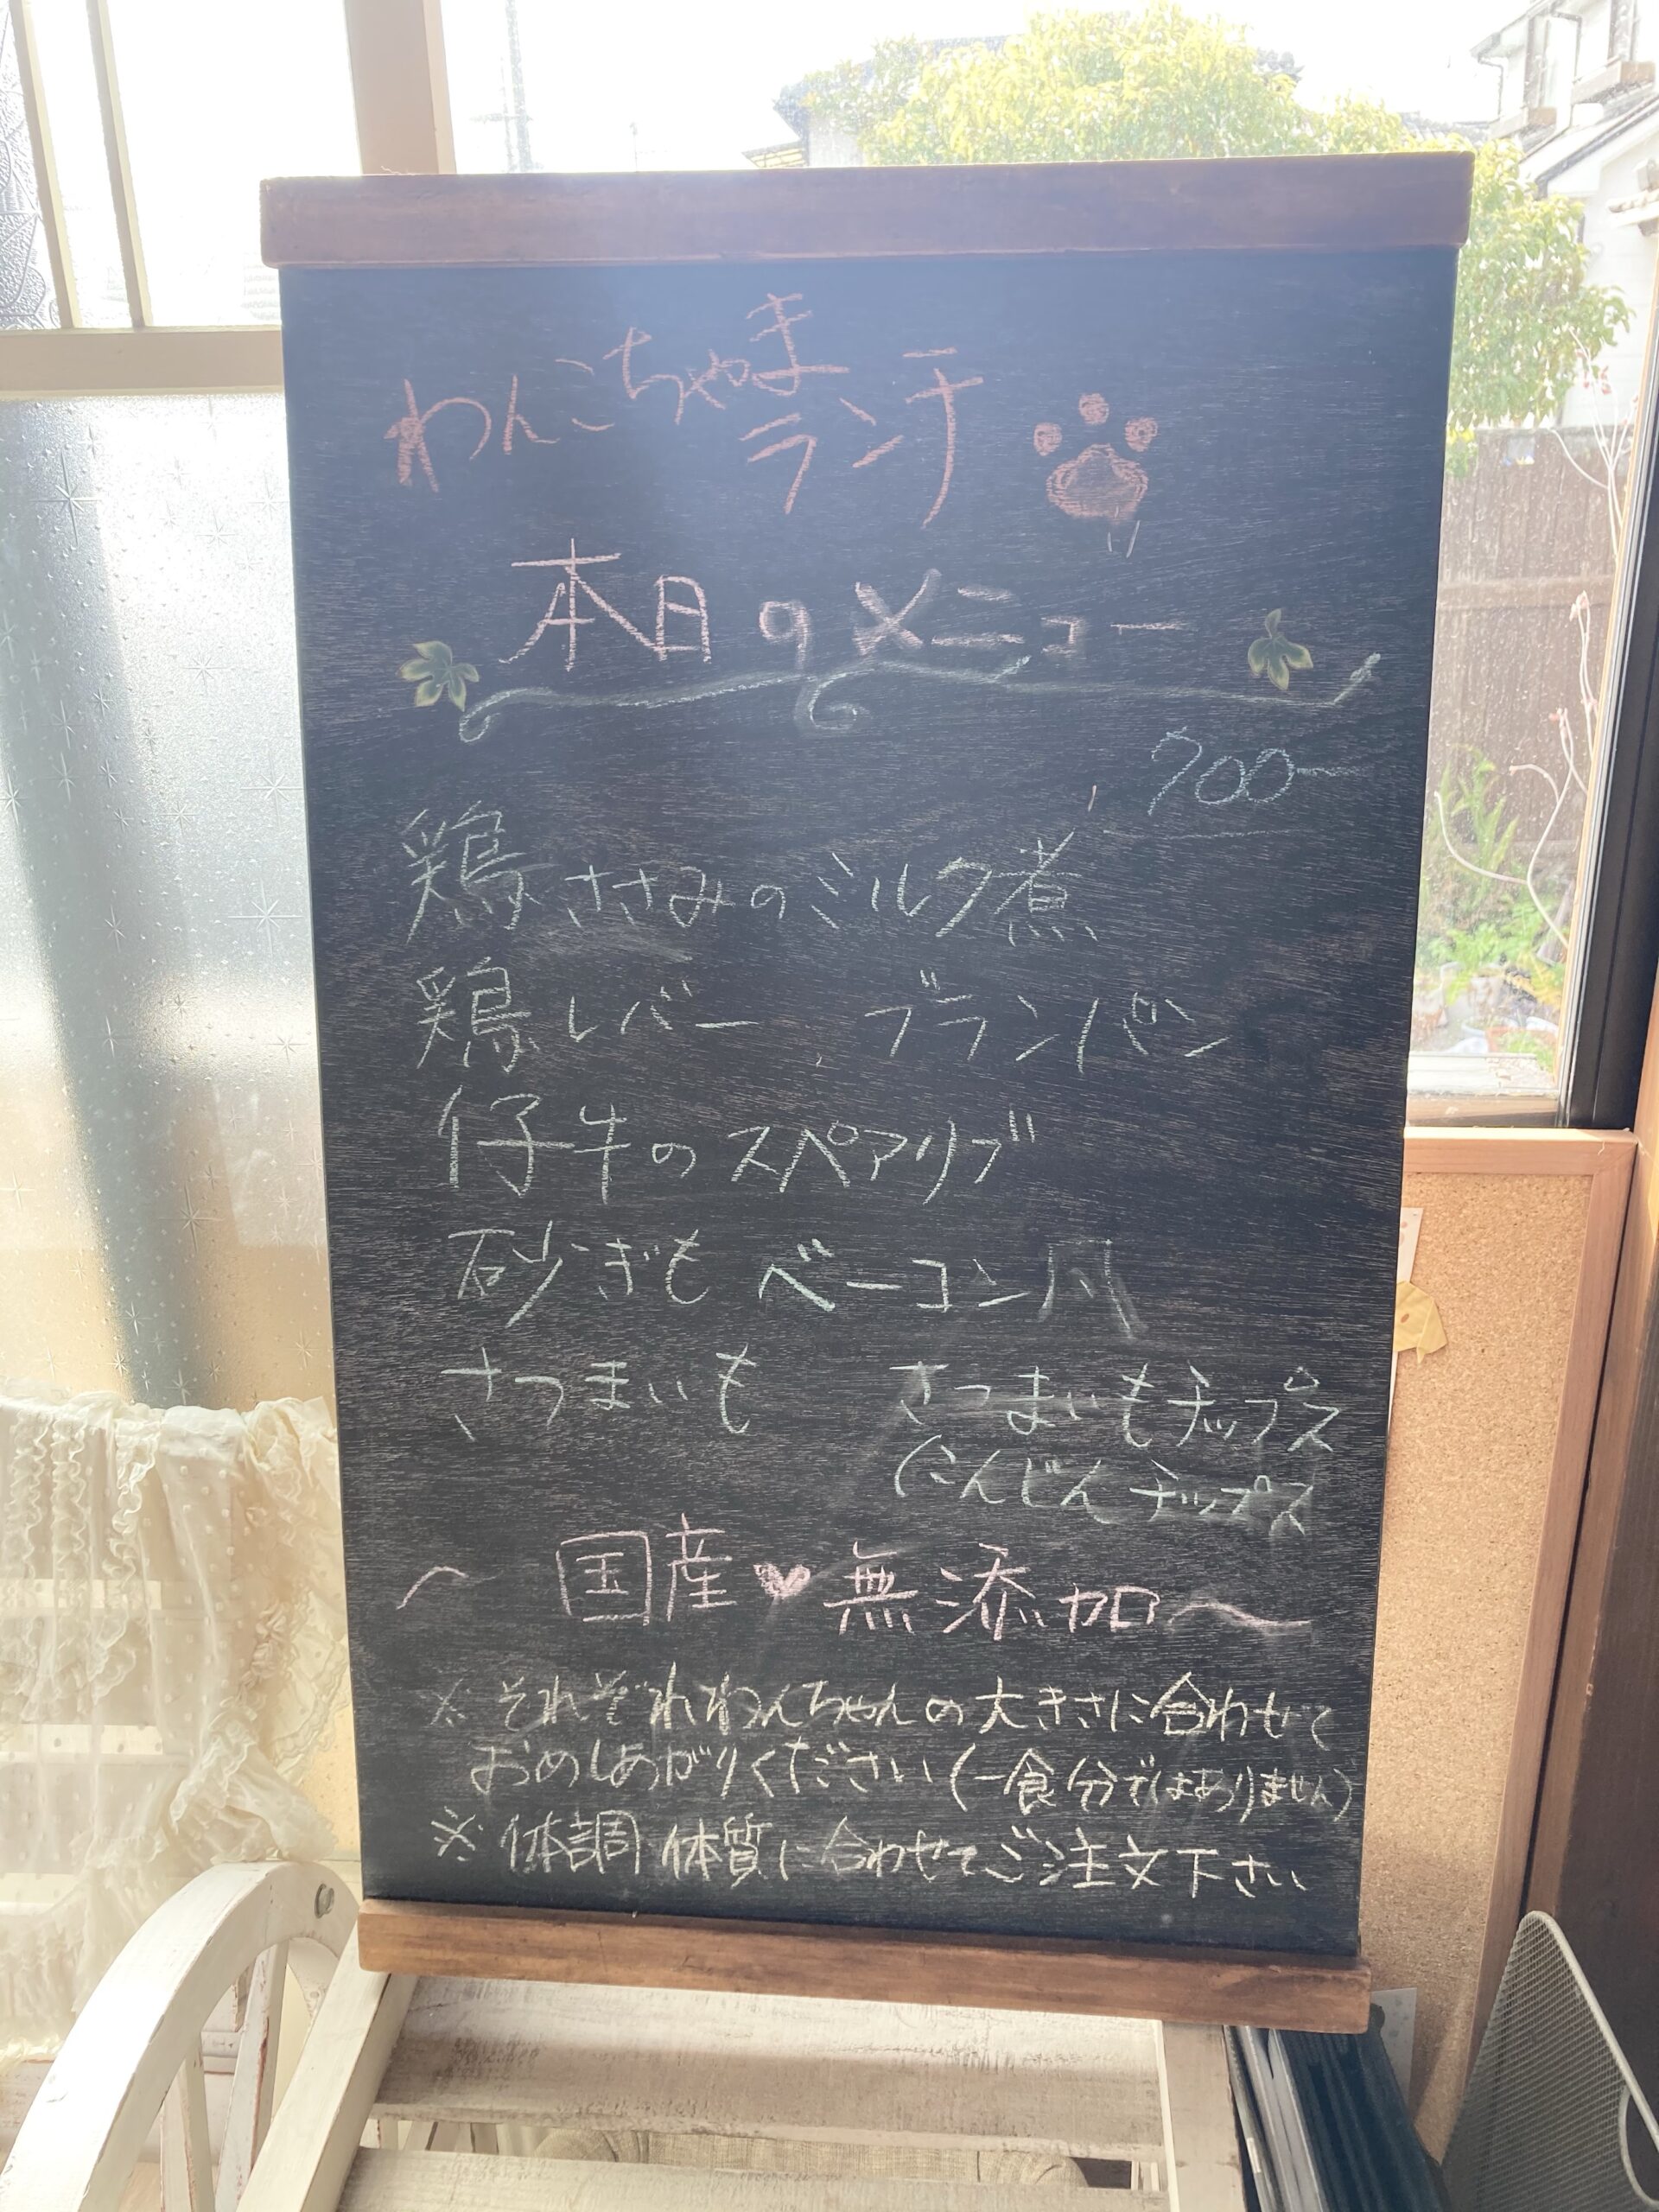 わんこちゃま
ランチ
本日のメニュー
700ー
鶏ささみのミルク煮
鶏レバー ブランパン
仔牛のスペアリブ
砂ぎも ベーコン
さつまいも さつまいもチップス
にんじんチップス
〜国産♥無添加〜
※それぞれわんちゃんの大きさに合わせて
おめしあがりください(一食分ではありません)
※体調体質に合わせてご注文下さい